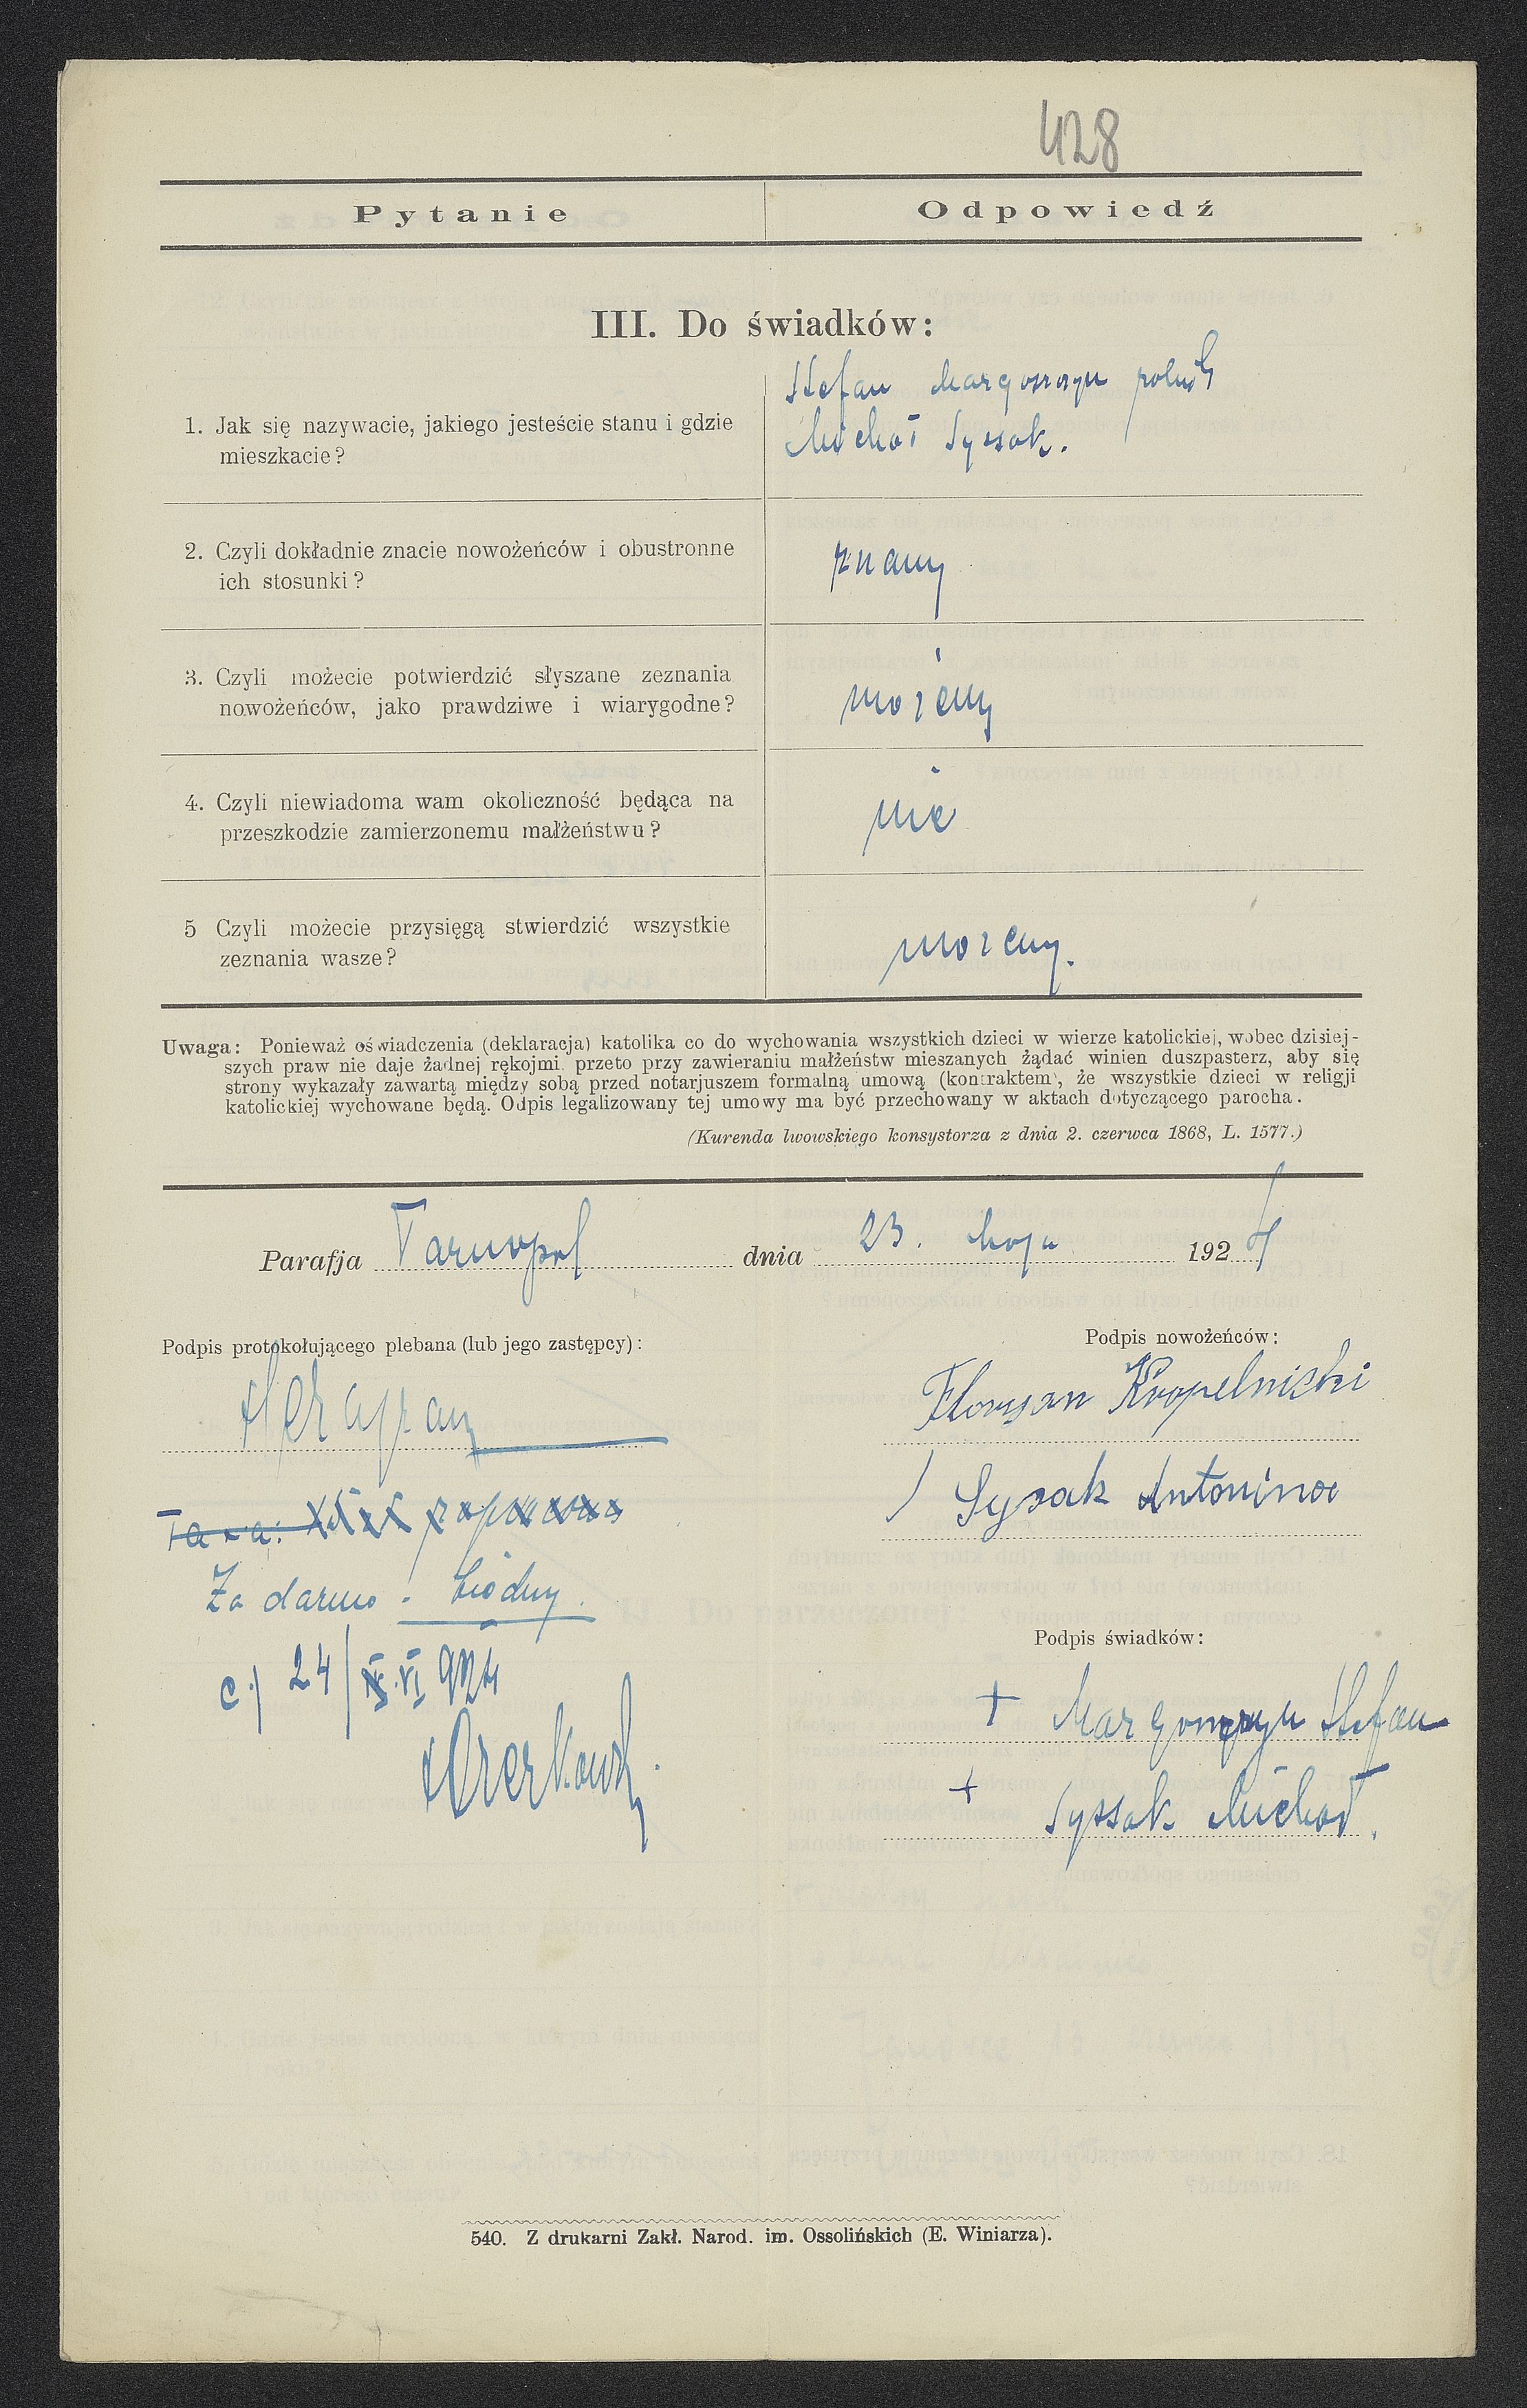 428
Pytanie Odpowiedź
III. Do świadków:
1. Jak się nazywacie, jakiego jesteście stanu i gdzie
mieszkacie?
Stefan rolnik
Michał Syssak.
2. Czyli dokładnie znacie nowożeńców i obustronne
ich stosunki?
znamy
3. Czyli możecie potwierdzić słyszane zeznania
nowożeńców, jako prawdziwe i wiarygodne?
możemy
4. Czyli niewiadoma wam okoliczność będąca na
przeszkodzie zamierzonemu małżeństwu?
nie
5 Czyli możecie przysięgą stwierdzić wszystkie
zeznania wasze?
możemy.
Uwaga: Ponieważ oświadczenia (deklaracja) katolika co do wychowania wszystkich dzieci w wierze katolickiej, wobec dzisiej-
szych praw nie daje żadnej rękojmi. przeto przy zawieraniu małżeństw mieszanych żądać winien duszpasterz, aby się
strony wykazały zawartą między sobą przed notarjuszem formalną umową (kontraktem), że wszystkie dzieci w religji
katolickiej wychowane będą. Odpis legalizowany tej umowy ma być przechowany w aktach dotyczącego parocha.
(Kurenda lwowskiego konsystorza z dnia 2. czerwca 1868, L. 1577.)
Parafja Tarnopol dnia 23. Maja 1924
Podpis protokołującego plebana (lub jego zastępcy):
Podpis nowożeńców:
Floryan Kropelnicki
Sysak Antonina
Za darmo - biedny.
c.) 24/VI 924
Podpis świadków:
+ Stefan
+ Syssak Michał.
540. Z drukarni Zakł. Narod. im. Ossolińskich (E. Winiarza).